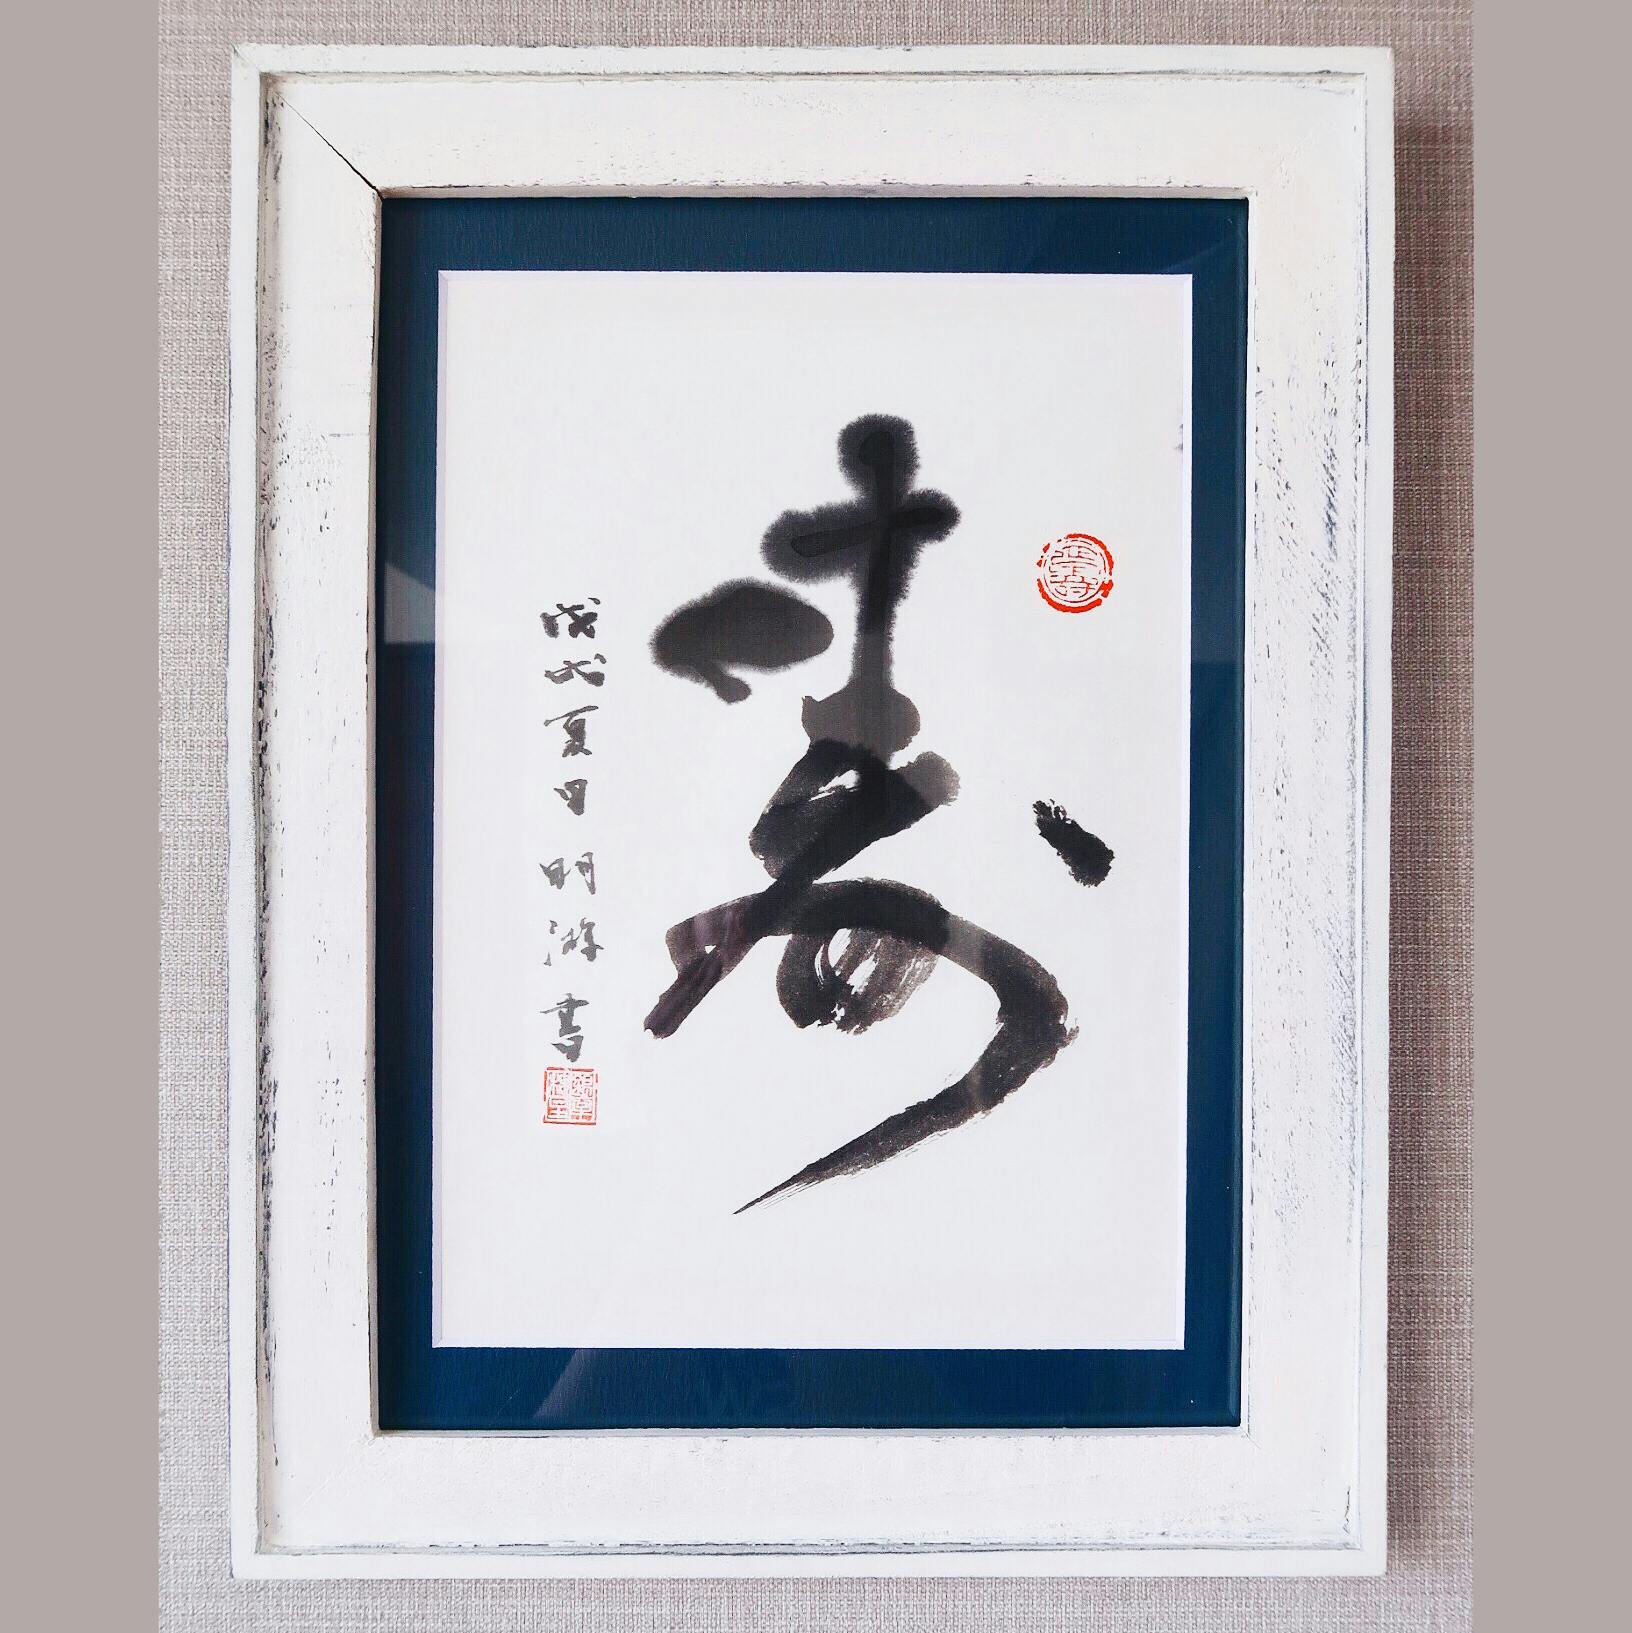 壽
戊戌夏日 明游書